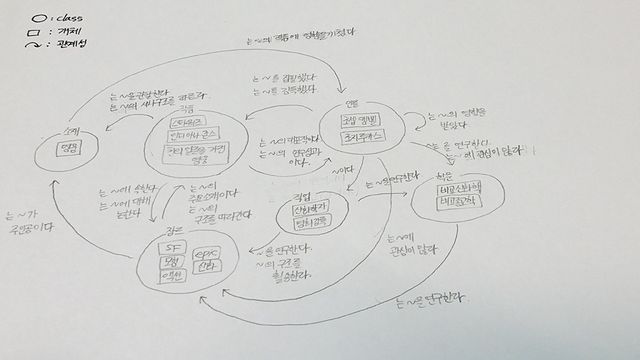 ○ : class
□ : 개체
↷ : 관계성
는 ~의 작품에 영향을 미쳤다
는 ~을 관람한다.
는 ~의 서사구조를 따른다.
는 ~를 집필했다
는 ~를 감독했다
작품
스타워즈
인디아나 존스
천의 얼굴을 가진
영웅
인물
조셉 캠벨
조지 루카스
는 ~의 영향을
받았다
소재
영웅
는 ~의 대표작이다
는 ~의 연구성과
이다.
는 ~를 연구한다
는 ~에 관심이 많다
학문
비교신화학
비교종교학
~이다.
는 ~을 연구한다
직업
신화학자
영화감독
는 ~에 속한다.
는 ~에 대해
논한다
는 ~의
주된 소재이다.
는 ~의
구조를 따라간다
는 ~가
주인공이다.
장르
SF
모험
액션
epic
신화
~을 연구한다.
~의 구조를
활용한다.
는 ~에
관심이 많다
는 ~을 연구한다.